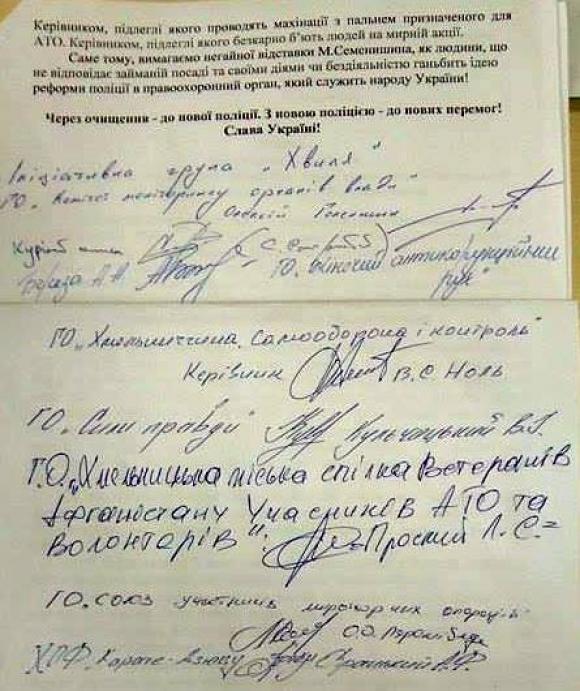 Керівником, підлеглі якого проводять махінації з пальнем призначеного для
АТО. Керівником, підлеглі якого безкарно б’ють людей на мирній акції.
Саме тому, вимагаємо негайної відставки М.Семенишина, як людини, що
не відповідає займаній посаді та своїми діями чи бездіяльністю ганьбить ідею
реформи поліції в правоохоронний орган, який служить народу України!
Через очищення - до нової поліції. З новою поліцією - до нових перемог!
Слава Україні!
Ініціативна група „Хвиля"
ГО „Комітет моніторингу органів влади"
Олексій
Береза А.А. ГО „Жіночий антикорупційний
рух"
ГО „Хмельниччина. Самооборона і контроль"
Керівник В.С. Ноль
ГО „Сили правди" Кульчацький В.
Г.О. „Хмельницька міська спілка Ветеранів
Афганістану Учасників АТО та
Волонтерів". Л.С.
ГО. союз учасників миротворчих операцій
О.О.
ХПФ. Карате-